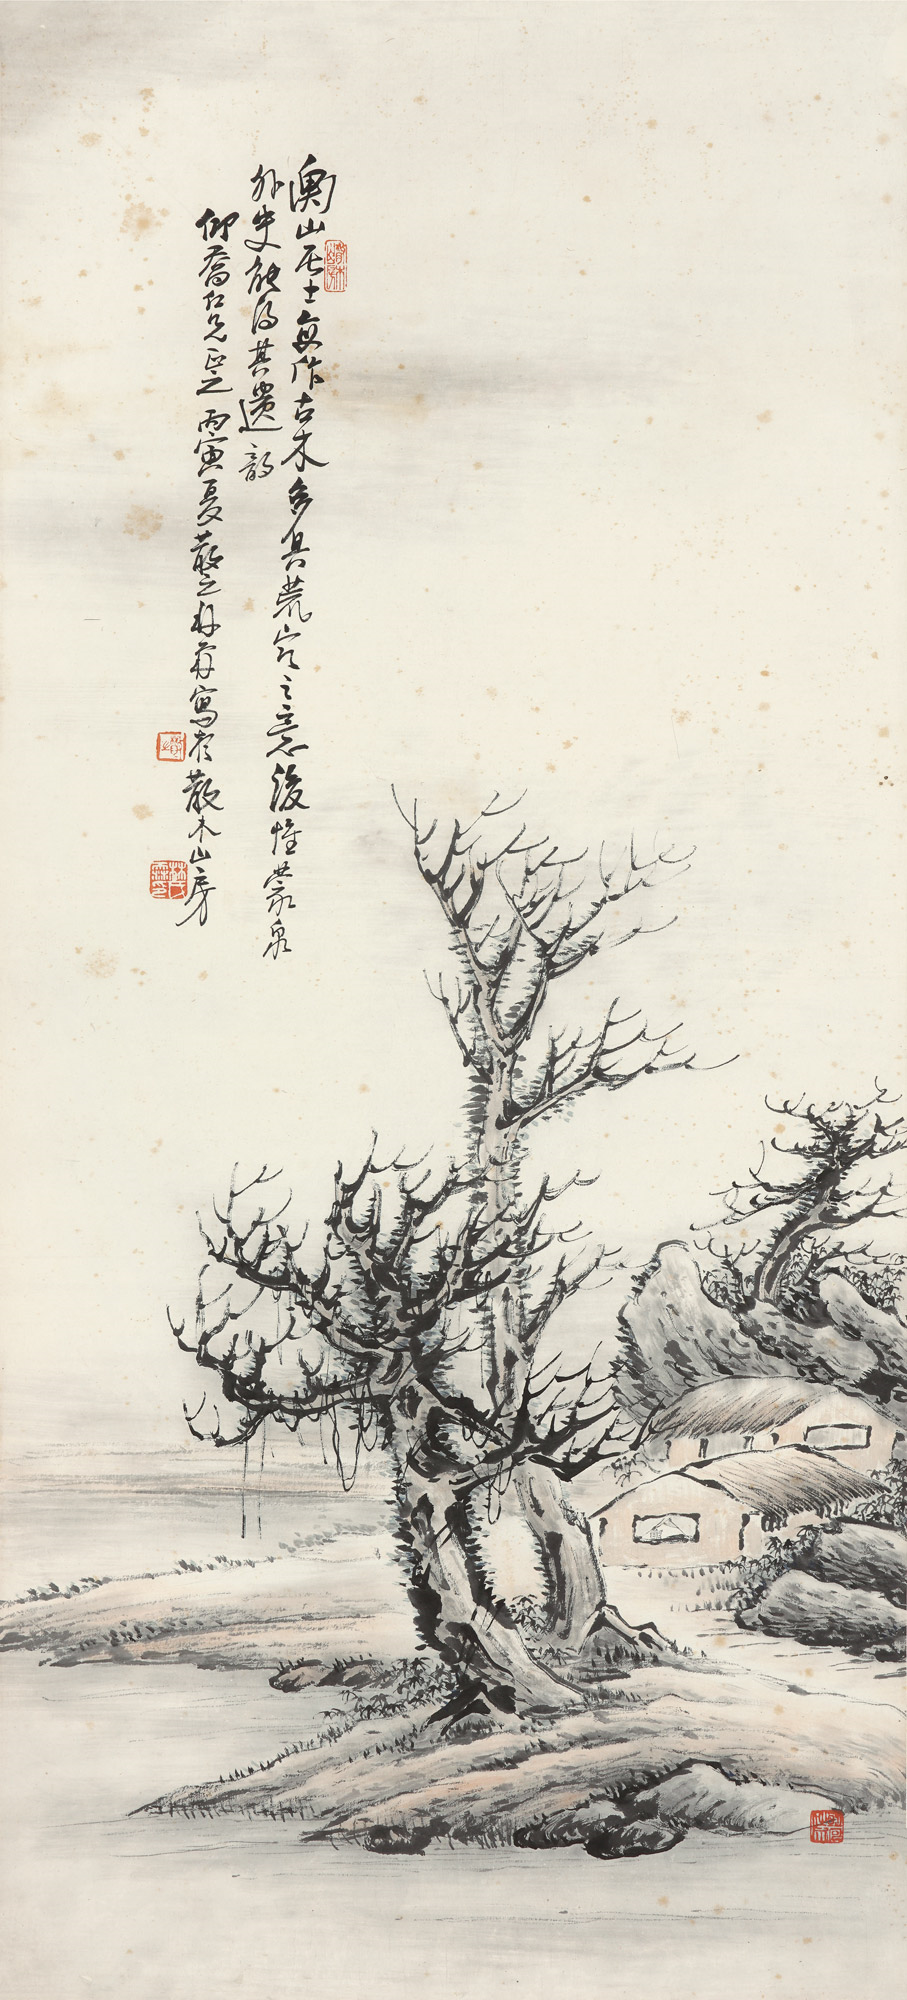 漁山居士每作古木多具荒寒之意後惟蒙泉
外史能得其遺韵
仰喬仁兄正之 丙寅夏散之寫於散木山房